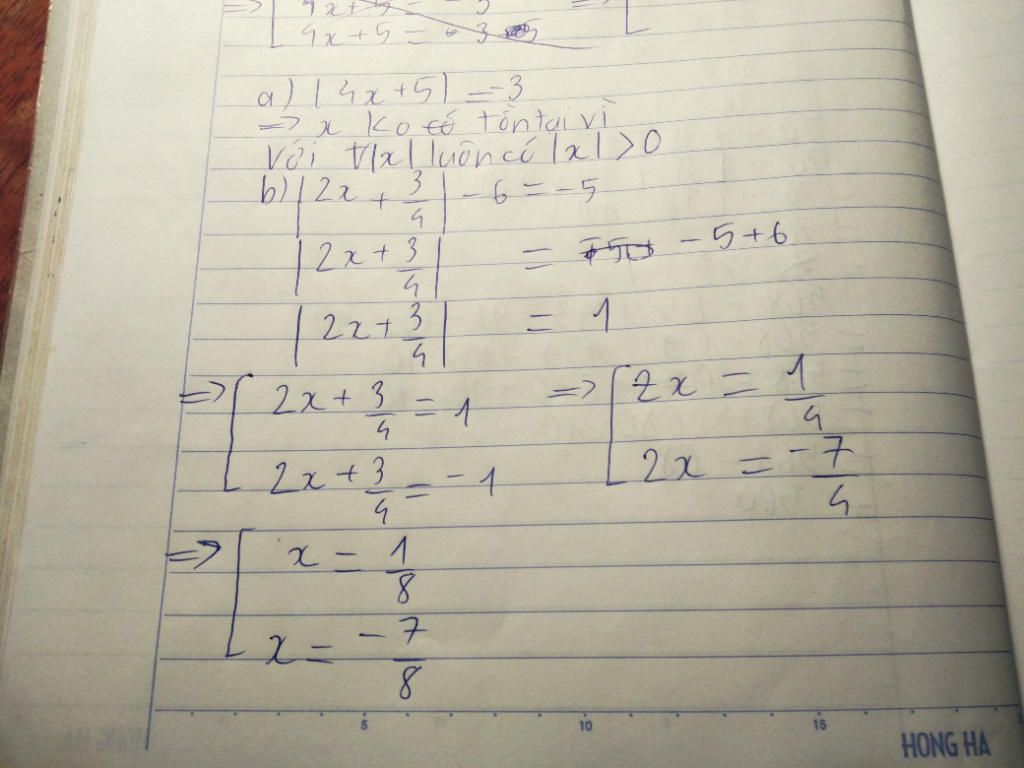 => [ 4x+5 = -3 =>
4x+5 = -3
a) |4x+5| = -3
=> x ko có tồn tại vì
Với ∀|x| luôn có |x| > 0
b) |2x + 3/4| - 6 = -5
|2x + 3/4| = -5+6
|2x + 3/4| = 1
=> [ 2x + 3/4 = 1 => [ 2x = 1/4
2x + 3/4 = -1 2x = -7/4
=> [ x = 1/8
x = -7/8
5 10 15
HONG HA